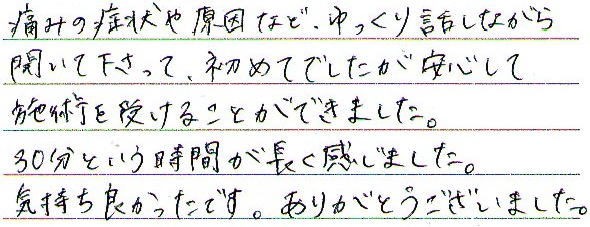 痛みの症状や原因など、ゆっくり話しながら
聞いて下さって、初めてでしたが安心して
施術を受けることができました。
30分という時間が長く感じました。
気持ち良かったです。ありがとうございました。